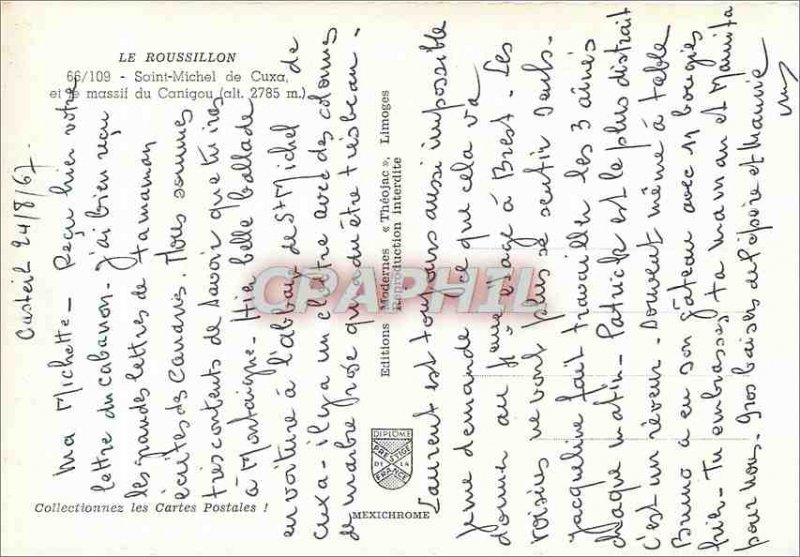 LE ROUSSILLON
66/109 - Saint-Michel de Cuxa,
et le massif du Canigou (alt. 2785 m.)
Casteil 24/8/67
Ma Michette - Reçu hier votre
lettre du cabanon. J'ai bien reçu
les grandes lettres de ta maman
écrites des Canaries. Nous sommes
très contents de savoir que tu iras
à Montaigne. Hier belle ballade
en voiture à l'abbaye de St Michel de
Cuxa - il y a un cloître avec des colonnes
de marbre rose qui a dû être très beau -
Laurent est toujours aussi impossible
je me demande ce que cela va
donner au Brest - Les
voisins ne vont plus se sentir seuls -
Jacqueline fait travailler les 3 aînés
chaque matin - Patrick est le plus distrait
c'est un rêveur - Souvent même à table
Bruno a eu son gâteau avec 11 bougies
Tu embrasses ta maman et Mamita
pour nous - Gros baisers de Pépère et Mamie
Editions Modernes « Théojac », Limoges
Reproduction Interdite
DIPLOME
PRESTIGE
DE LA
FRANCE
MEXICHROME
Collectionnez les Cartes Postales !
CPAPHIL